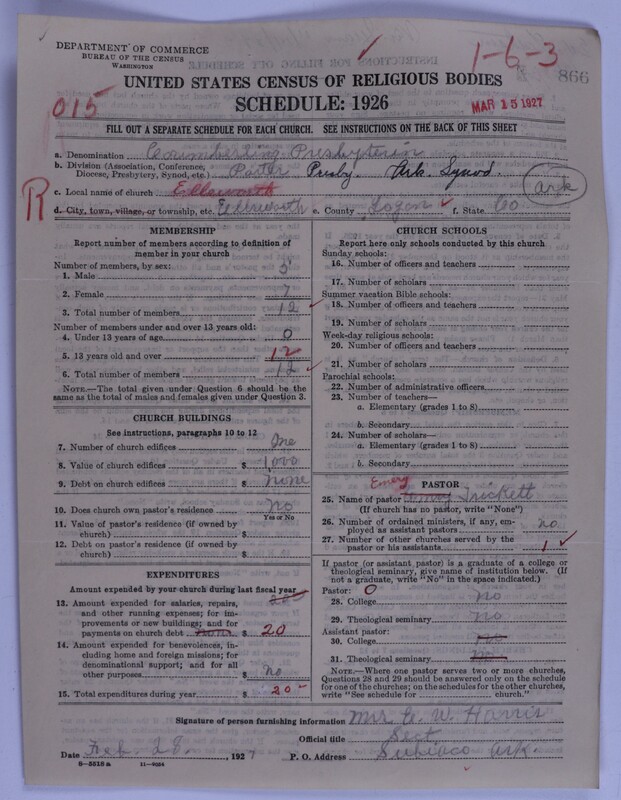 DEPARTMENT OF COMMERCE
BUREAU OF THE CENSUS
WASHINGTON
1-6-3
866
UNITED STATES CENSUS OF RELIGIOUS BODIES
015
SCHEDULE: 1926
MAR 15 1927
FILL OUT A SEPARATE SCHEDULE FOR EACH CHURCH. SEE INSTRUCTIONS ON THE BACK OF THIS SHEET
a. Denomination Coumberling Presbyterin
b. Division (Association, Conference, Diocese, Presbytery, Synod, etc.) Porter Presby. Ark. Synod.
Ark
R
c. Local name of church Ellsworth
d. City, town, village, or township, etc. Ellsworth e. County Logan f. State Co
MEMBERSHIP
Report number of members according to definition of
member in your church
Number of members, by sex:
1. Male 5
2. Female 7
3. Total number of members 12
Number of members under and over 13 years old:
4. Under 13 years of age 0
5. 13 years old and over 12
6. Total number of members 12
NOTE.—The total given under Question 6 should be
same as the total of males and females given under Question 3.
CHURCH BUILDINGS
See instructions, paragraphs 10 to 12
7. Number of church edifices One
8. Value of church edifices $ 1,000
9. Debt on church edifices $ none
10. Does church own pastor's residence No
Yes or No
11. Value of pastor's residence (if owned by
church) $
12. Debt on pastor's residence (if owned by
church) $
EXPENDITURES
Amount expended by your church during last fiscal year
13. Amount expended for salaries, repairs,
and other running expenses; for im-
provements or new buildings; and for
payments on church debt none $ 20
14. Amount expended for benevolences, in-
cluding home and foreign missions; for
denominational support; and for all
other purposes $ no
15. Total expenditures during year $ 20
CHURCH SCHOOLS
Report here only schools conducted by this church
Sunday schools:
16. Number of officers and teachers
17. Number of scholars
Summer vacation Bible schools:
18. Number of officers and teachers
19. Number of scholars
Week-day religious schools:
20. Number of officers and teachers
21. Number of scholars
Parochial schools:
22. Number of administrative officers
23. Number of teachers—
a. Elementary (grades 1 to 8)
b. Secondary
24. Number of scholars—
a. Elementary (grades 1 to 8)
b. Secondary
PASTOR
Emery
25. Name of pastor Trickett
(If church has no pastor, write "None")
26. Number of ordained ministers, if any, em-
ployed as assistant pastors no
27. Number of other churches served by the
pastor or his assistants 1
If pastor (or assistant pastor) is a graduate of a college or
theological seminary, give name of institution below. (If
not a graduate, write "No" in the space indicated.)
Pastor: 0
28. College no
29. Theological seminary no
Assistant pastor:
30. College no
31. Theological seminary no
NOTE.—Where one pastor serves two or more churches,
Questions 28 and 29 should be answered only on the schedule
for one of the churches; on the schedules for the other churches,
write "See schedule for church."
Signature of person furnishing information Mrs. E. W. Harris
Official title Sect.
Date Feb. 28, 1927 P. O. Address Subiaco Ark.
8-5518a 11-9224